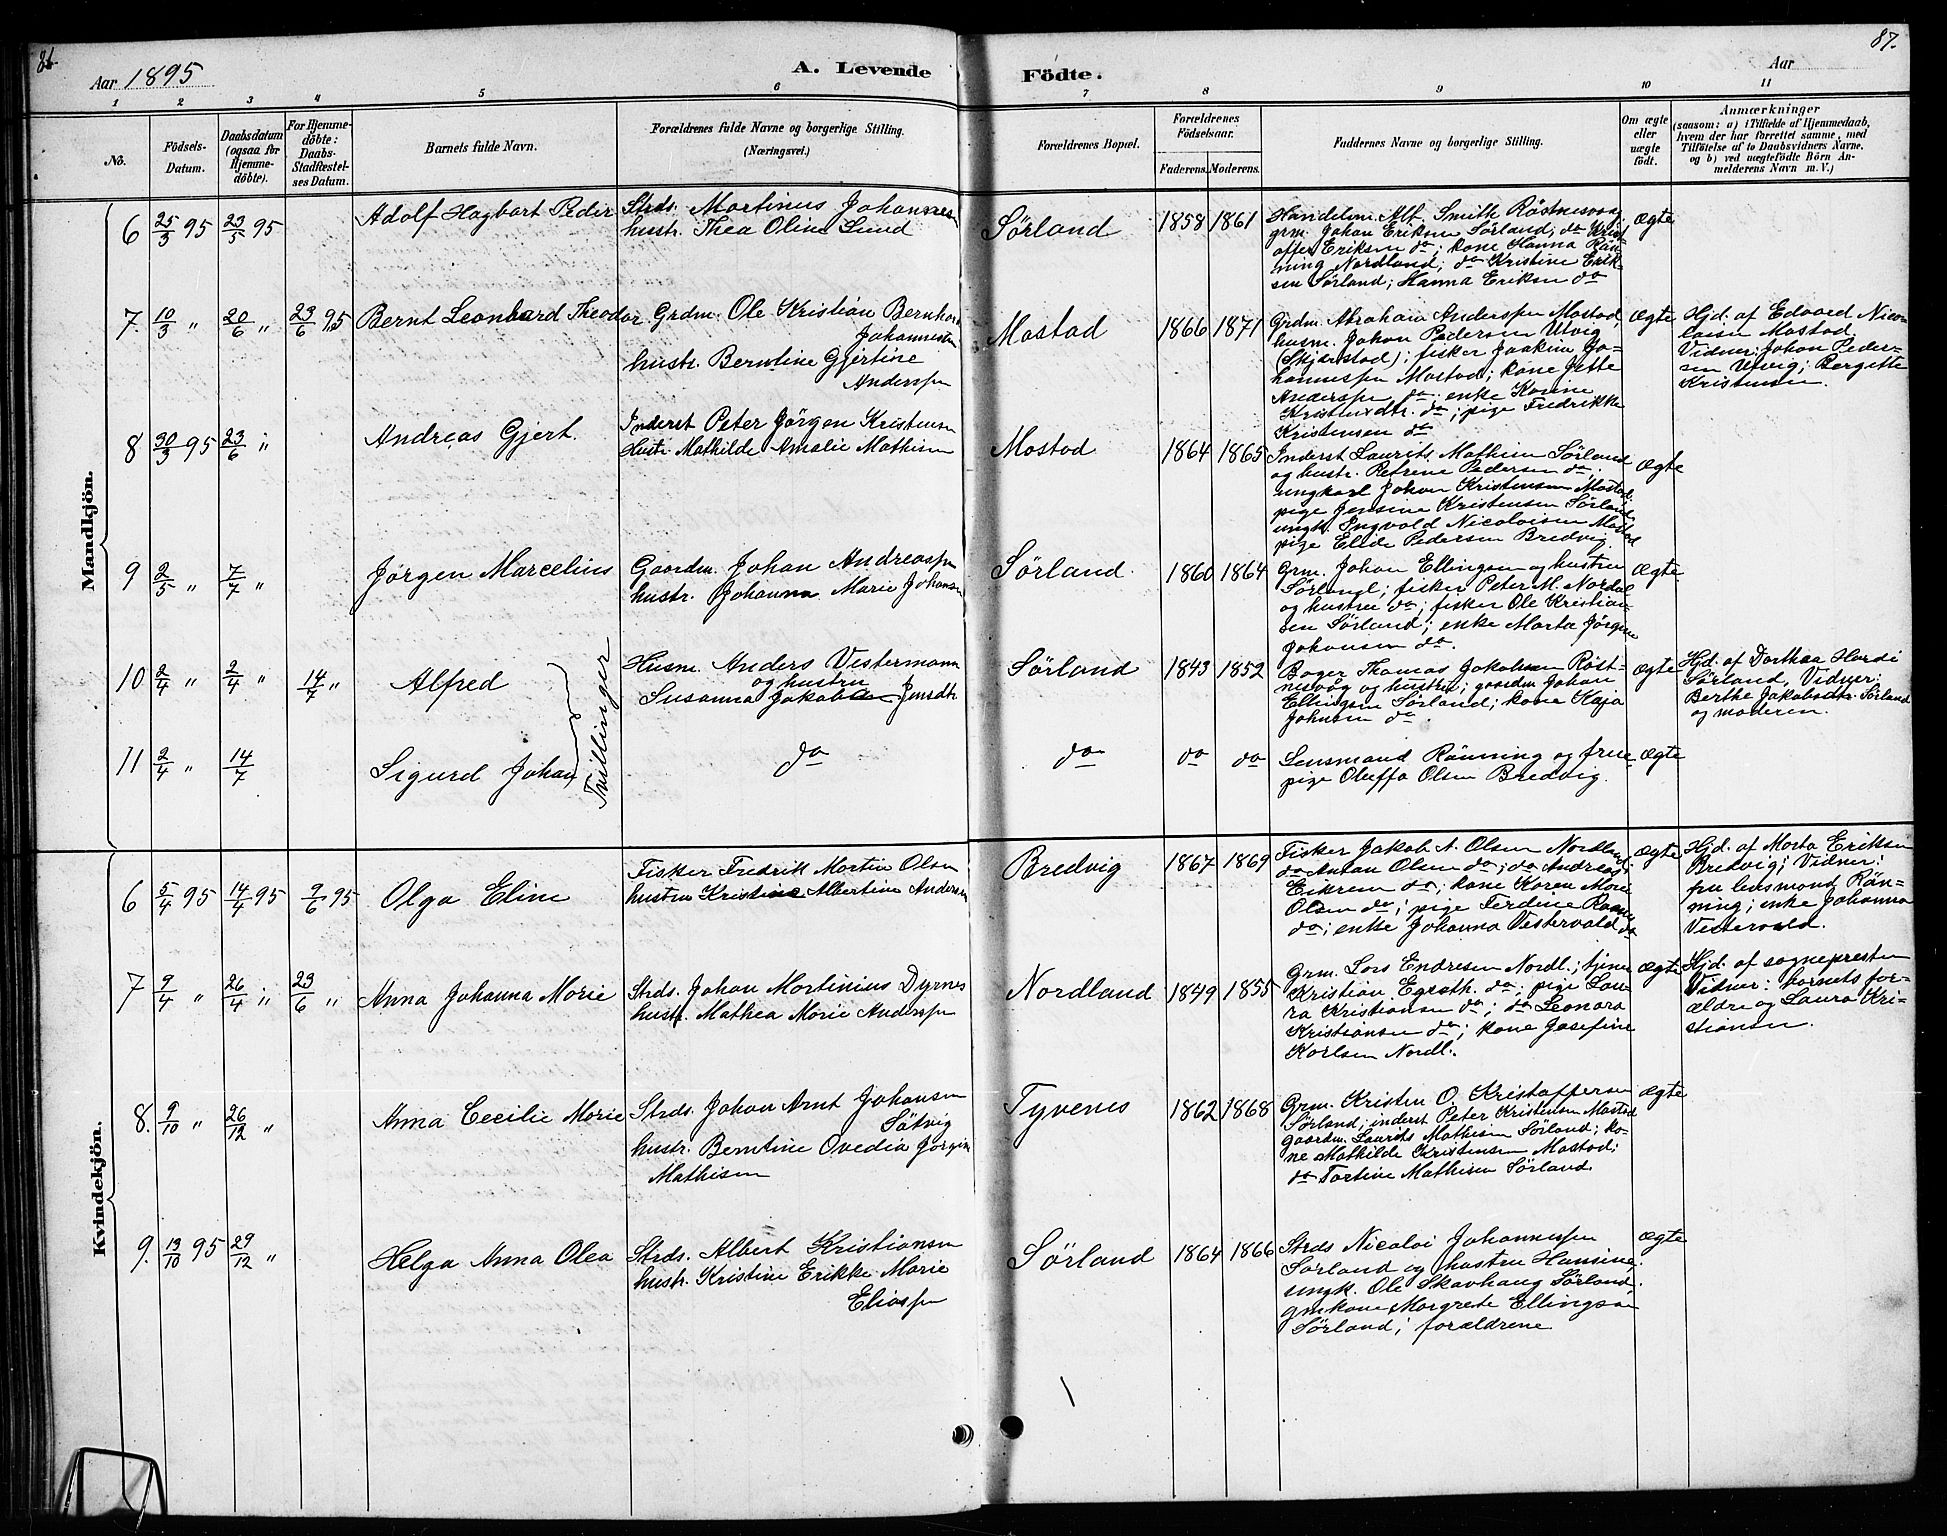 86
87.
Aar 1895
A. Levende Födte.
Aar
1 2 3 4 5 6 7 8 9 10 11
No.
Födsels-
Datum.
Daabsdatum
(ogsaa for
Hjemme-
döbte).
For Hjemme-
döbte:
Daabs-
Stadfæstel-
ses Datum.
Barnets fulde Navn.
Forældrenes fulde Navne og borgerlige Stilling.
(Næringsvei.)
Forældrenes Bopæl.
Forældrenes
Födselsaar.
Faderens. Moderens.
Faddernes Navne og borgerlige Stilling.
Om ægte
eller
uægte
födt.
Anmærkninger
(saasom: a) i Tilfælde af Hjemmedaab,
hvem der har forrettet samme, med
Tilföielse af to Daabsvidners Navne,
og b) ved uægtefödte Börn An-
melderens Navn m. V.)
Mandkjön.
6 25/3 95 23/5 95 Adolf Hagbart Peder
Strds. Martinus Johannesen
hustr. Thea Oline Lund
Sørland 1858 1861
Handelsm. Alf. Smith Röstnesvaag
grm. Johan Eriksen Sørland; do Krist-
offer Eriksen do; kone Hanna Rän-
ning Nordland; do Kristine Erik-
sen Sørland; Hanna Eriksen do
ægte
7. 10/3 " 20/6 " 23/6 95 Bernt Leonhard Theodor
Grdm. Ole Kristian Bernhard
Johannessen
hustr. Berntine Gjertine
Anderssen
Mostad 1866 1871
Grdm. Abraham Anderssen Mostad,
husm. Johan Pedersen Utvig
(Skjærstad); fisker Joakim Jo-
hannessen Mostad; kone Jette
Anderssen do; enke Karine
Kristensdtr. do; pige Fredrikke
Kristensen do
ægte
Hjd. af Edvard Nico-
laisen Mostad
Vidner: Johan Peder-
sen Utvig; Bergitte
Kristensen.
8 30/3 95 23/6 " Andreas Gjert.
Inderst Peter Jörgen Kristensen
Hustr. Mathilde Amalie Mathisen
Mostad 1864 1865
Inderst Laurits Mathisen Sørland
og hustr. Petrine Pedersen do;
ungkarl Johan Kristensen Mostad
pige Jensine Kristensen Sørland
ungk. Ingvald Nicolaisen Mostad
pige Elide Pedersen Bredvig
ægte
9 2/5 " 7/7 " Jörgen Marcelius
Gaardm. Johan Andreassen
hustr. Johanna Marie Johansen
Sørland. 1860 1864
Grm. Johan Ellingsen og hustru
Sørland; fisker Peter M. Nordal
og hustru do; fisker Ole Kristian-
sen Sørland; enke Marta Jörgine
Johansen do.
ægte
10 2/4 " 2/4 " 14/7 " Alfred
Husm. Anders Vestermann
og hustru
Susanna Jakobea Jensdtr
Sørland 1843 1852
Bager Thomas Jakobsen Röst-
nesvåg og hustru; gaardm Johan
Ellingsen Sørland; kone Kaja
Johnsen do.
ægte
Hjd. af Dorthea Hardi
Sørland, Vidner:
Berthe Jakobsdtr. Sørland
og moderen.
11 2/4 " 14/7 Sigurd Johan
Tvillinger
do do do do
Lensmand Ränning og frue
pige Oluffa Olsen Bredvig.
ægte
Kvindekjön.
6 5/4 95 14/4 95 9/6 95 Olga Eline
Fisker Fredrik Martin Olsen
hustru Kristine Albertine Andersen
Bredvig 1867 1869
Fisker Jakob A. Olsen Nordland;
do Anton Olsen do; do Andreas
Eikrem do; kone Karen Marie
Olsen do; pige Ferdine
do; enke Johanna Vestervald do
ægte
Hjd. af Marta Eriksen
Bredvig; Vidner:
fru lensmand Rän-
ning; enke Johanna
Vestervald.
7 9/4 " 26/4 " 23/6 " Anna Johanna Marie
Strds. Johan Martinius Dyrnes
hustr. Mathea Marie Anderssen
Nordland 1849 1855
Grm. Lars Endresen Nordl.; tjener
Kristian Egesth. do; pige Lau-
ra Kristiansen do; do Leonora
Kristiansen do; kone Josefine
Karlsen Nordl.
ægte
Hjd. af sognepresten
Vidner: barnets for-
ældre og Laura Kri-
stiansen.
8. 9/10 " 26/12 " Anna Cecilie Marie
Strds. Johan Arnt Johansen
Sätvig
hustr. Berntine Ovedia Jörgine
Mathisen
Tyvenes 1862 1868
Grm. Kristen O. Kristoffersen
Sørland; inderst Peter Kristensen Mostad
gaardm. Laurits Mathisen Sørland; ko-
ne Mathilde Kristensen Mostad;
do Tortine Mathisen Sørland.
ægte
9. 13/10 95 29/12 " Helga Anna Olea
Strds. Albert Kristiansen
hustr. Kristine Erikke Marie
Eliassen
Sørland 1864 1866
Strds Nicolai Johannessen
Sørland og hustru Hansine;
ungk. Ole Skavhaug Sørland;
gmkone Margrete Ellingsen
Sørland; forældrene
ægte